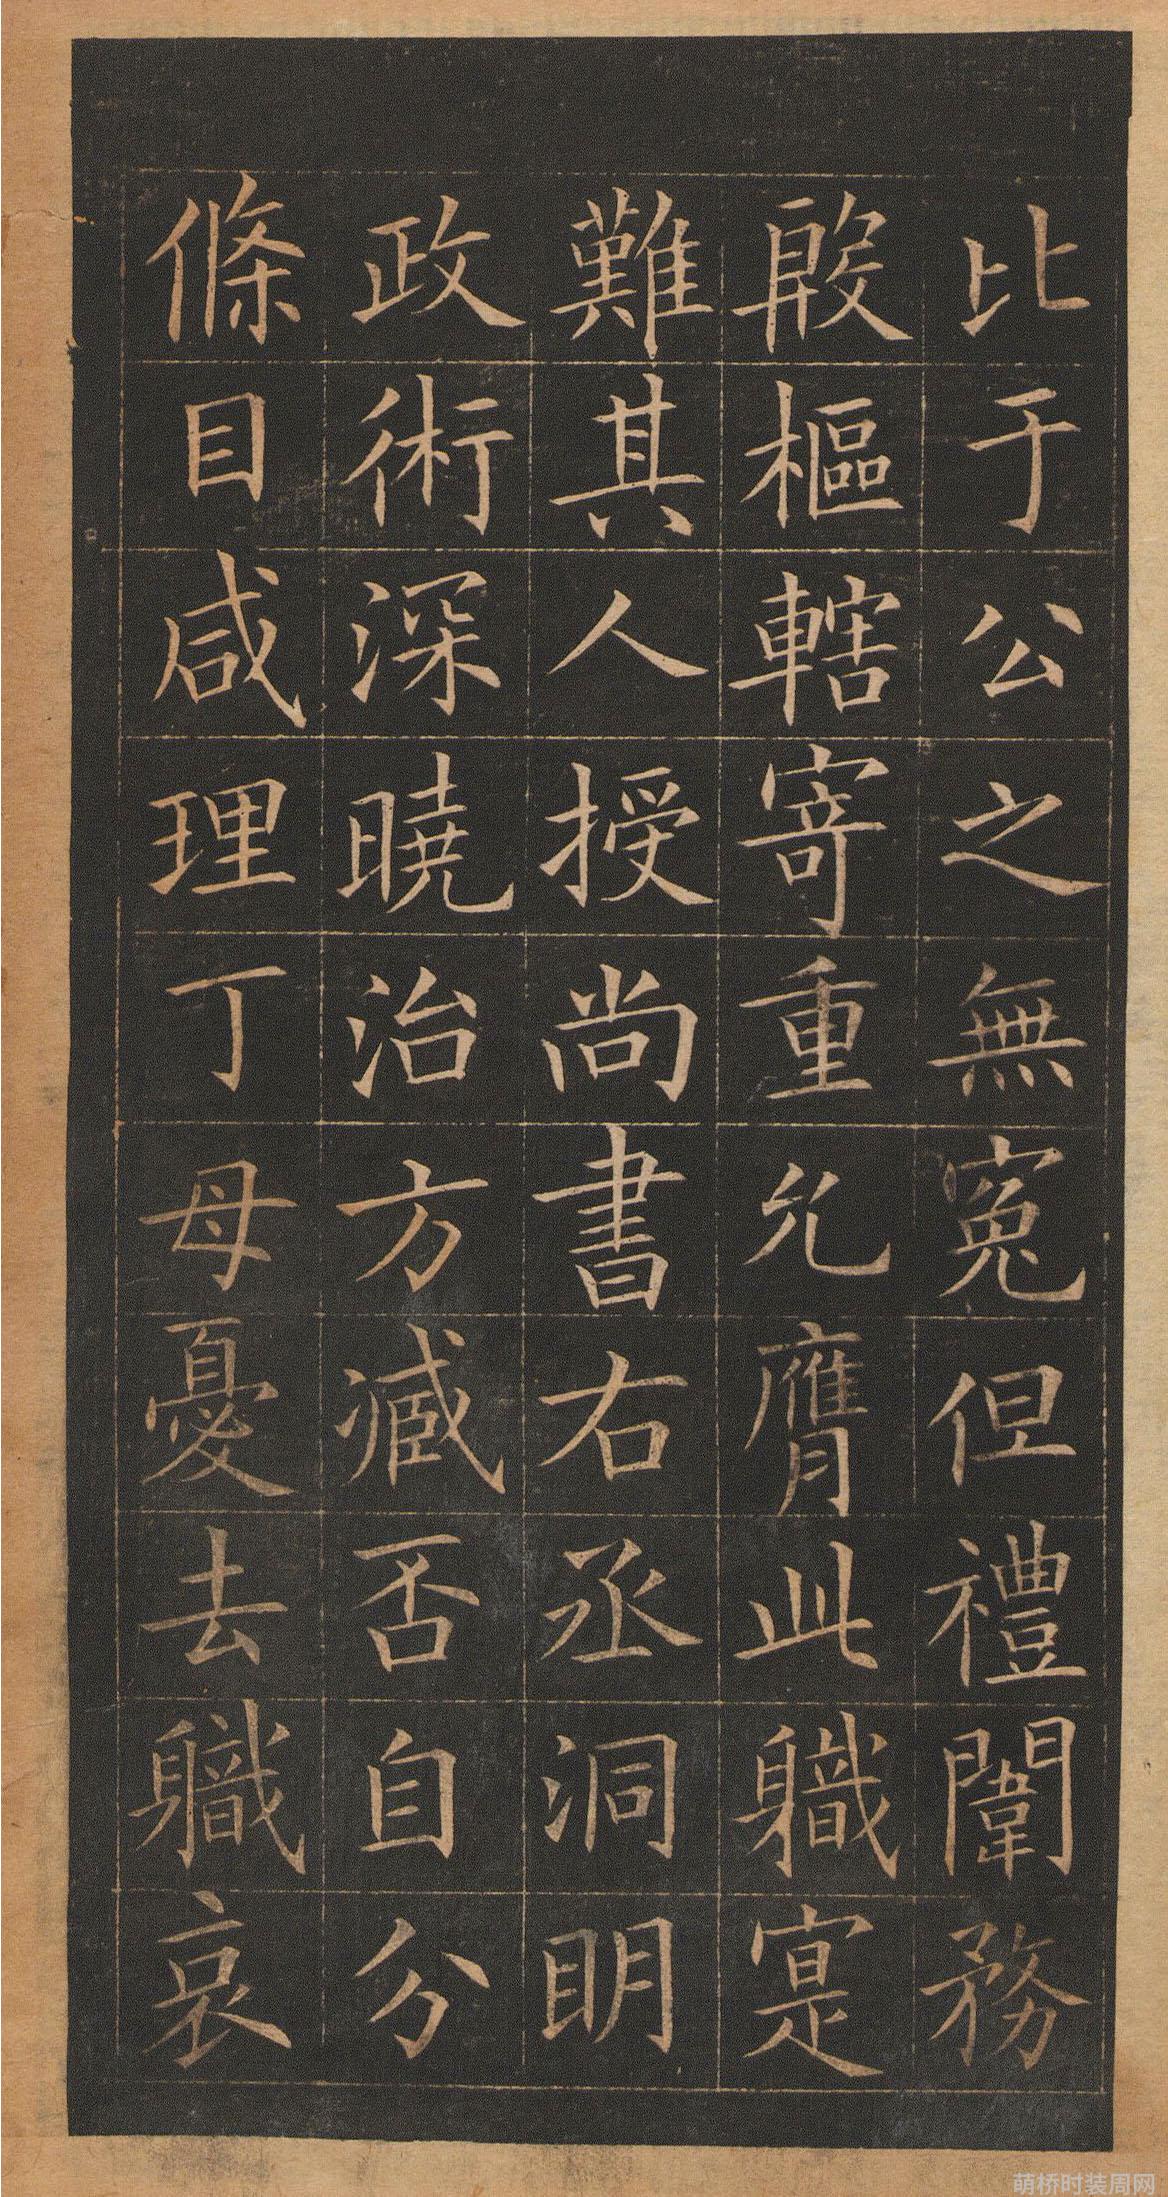 比于公之無寃但禮闈務
殷樞轄寄重允膺此職寔
難其人授尚書右丞洞明
政術深曉治方臧否自分
條目咸理丁母憂去職哀
萌桥时装周网